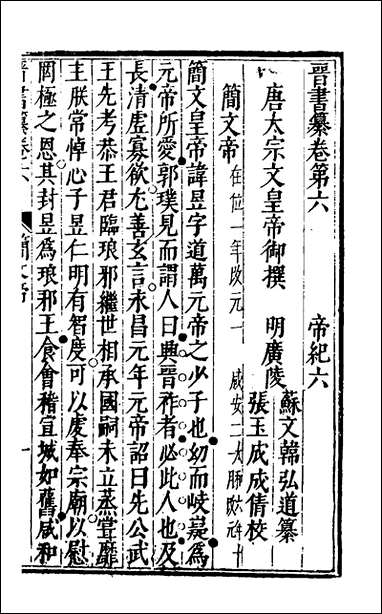 晉書纂卷第六 帝紀六
唐太宗文皇帝御撰 明廣陵 蘇文韓弘道纂
張玉成成倩校
簡文帝 在位一年改元一 咸安二
簡文皇帝諱昱字道萬元帝之少子也幼而岐嶷爲
元帝所愛郭璞見而謂人曰典晉祚者必此人也及
長清虛寡欲尤善玄言永昌元年元帝詔曰先公武
王先考恭王君臨琅邪繼世相承國嗣未立蒸嘗靡
主朕常悼心子昱仁明有智度可以虔奉宗廟以慰
罔極之恩其封昱爲琅邪王食會稽宣城如舊咸和
晉書纂卷六 簡文帝 一